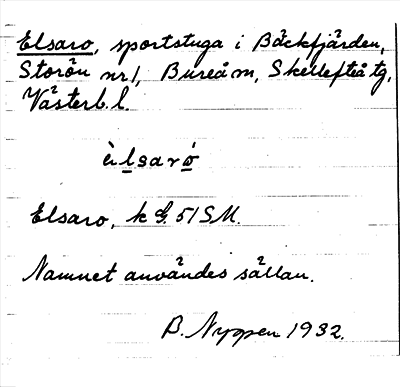 Elsaro, sportstuga i Bäckfjärden,
Storön nr 1, Bureå sn, Skellefteå tg,
Västerb. l.
èlsarò
Elsaro, k 51 SV.
Namnet användes sällan.
B. Nyzen 1932.